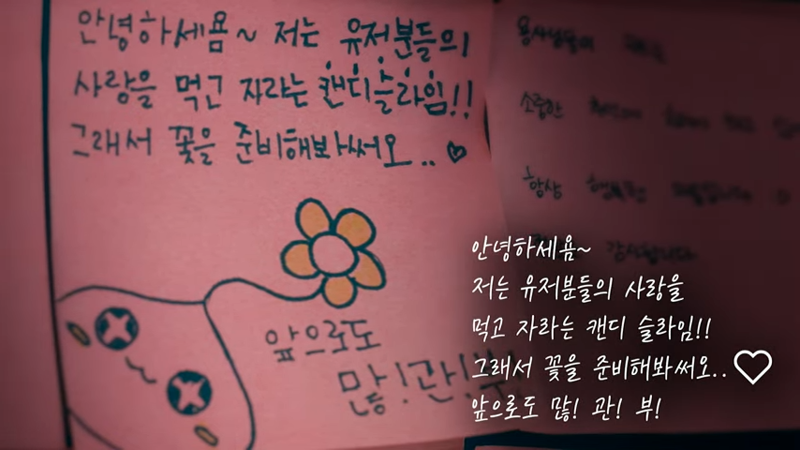 안녕하세욤~ 저는 유저분들의
사랑을 먹고 자라는 캔디슬라임!!
그래서 꽃을 준비해봐써오.. ♡
앞으로도
많!관!부!
소중한
항상 행복한
감사합니다
안녕하세욤~
저는 유저분들의 사랑을
먹고 자라는 캔디 슬라임!!
그래서 꽃을 준비해봐써오.. ♡
앞으로도 많! 관! 부!